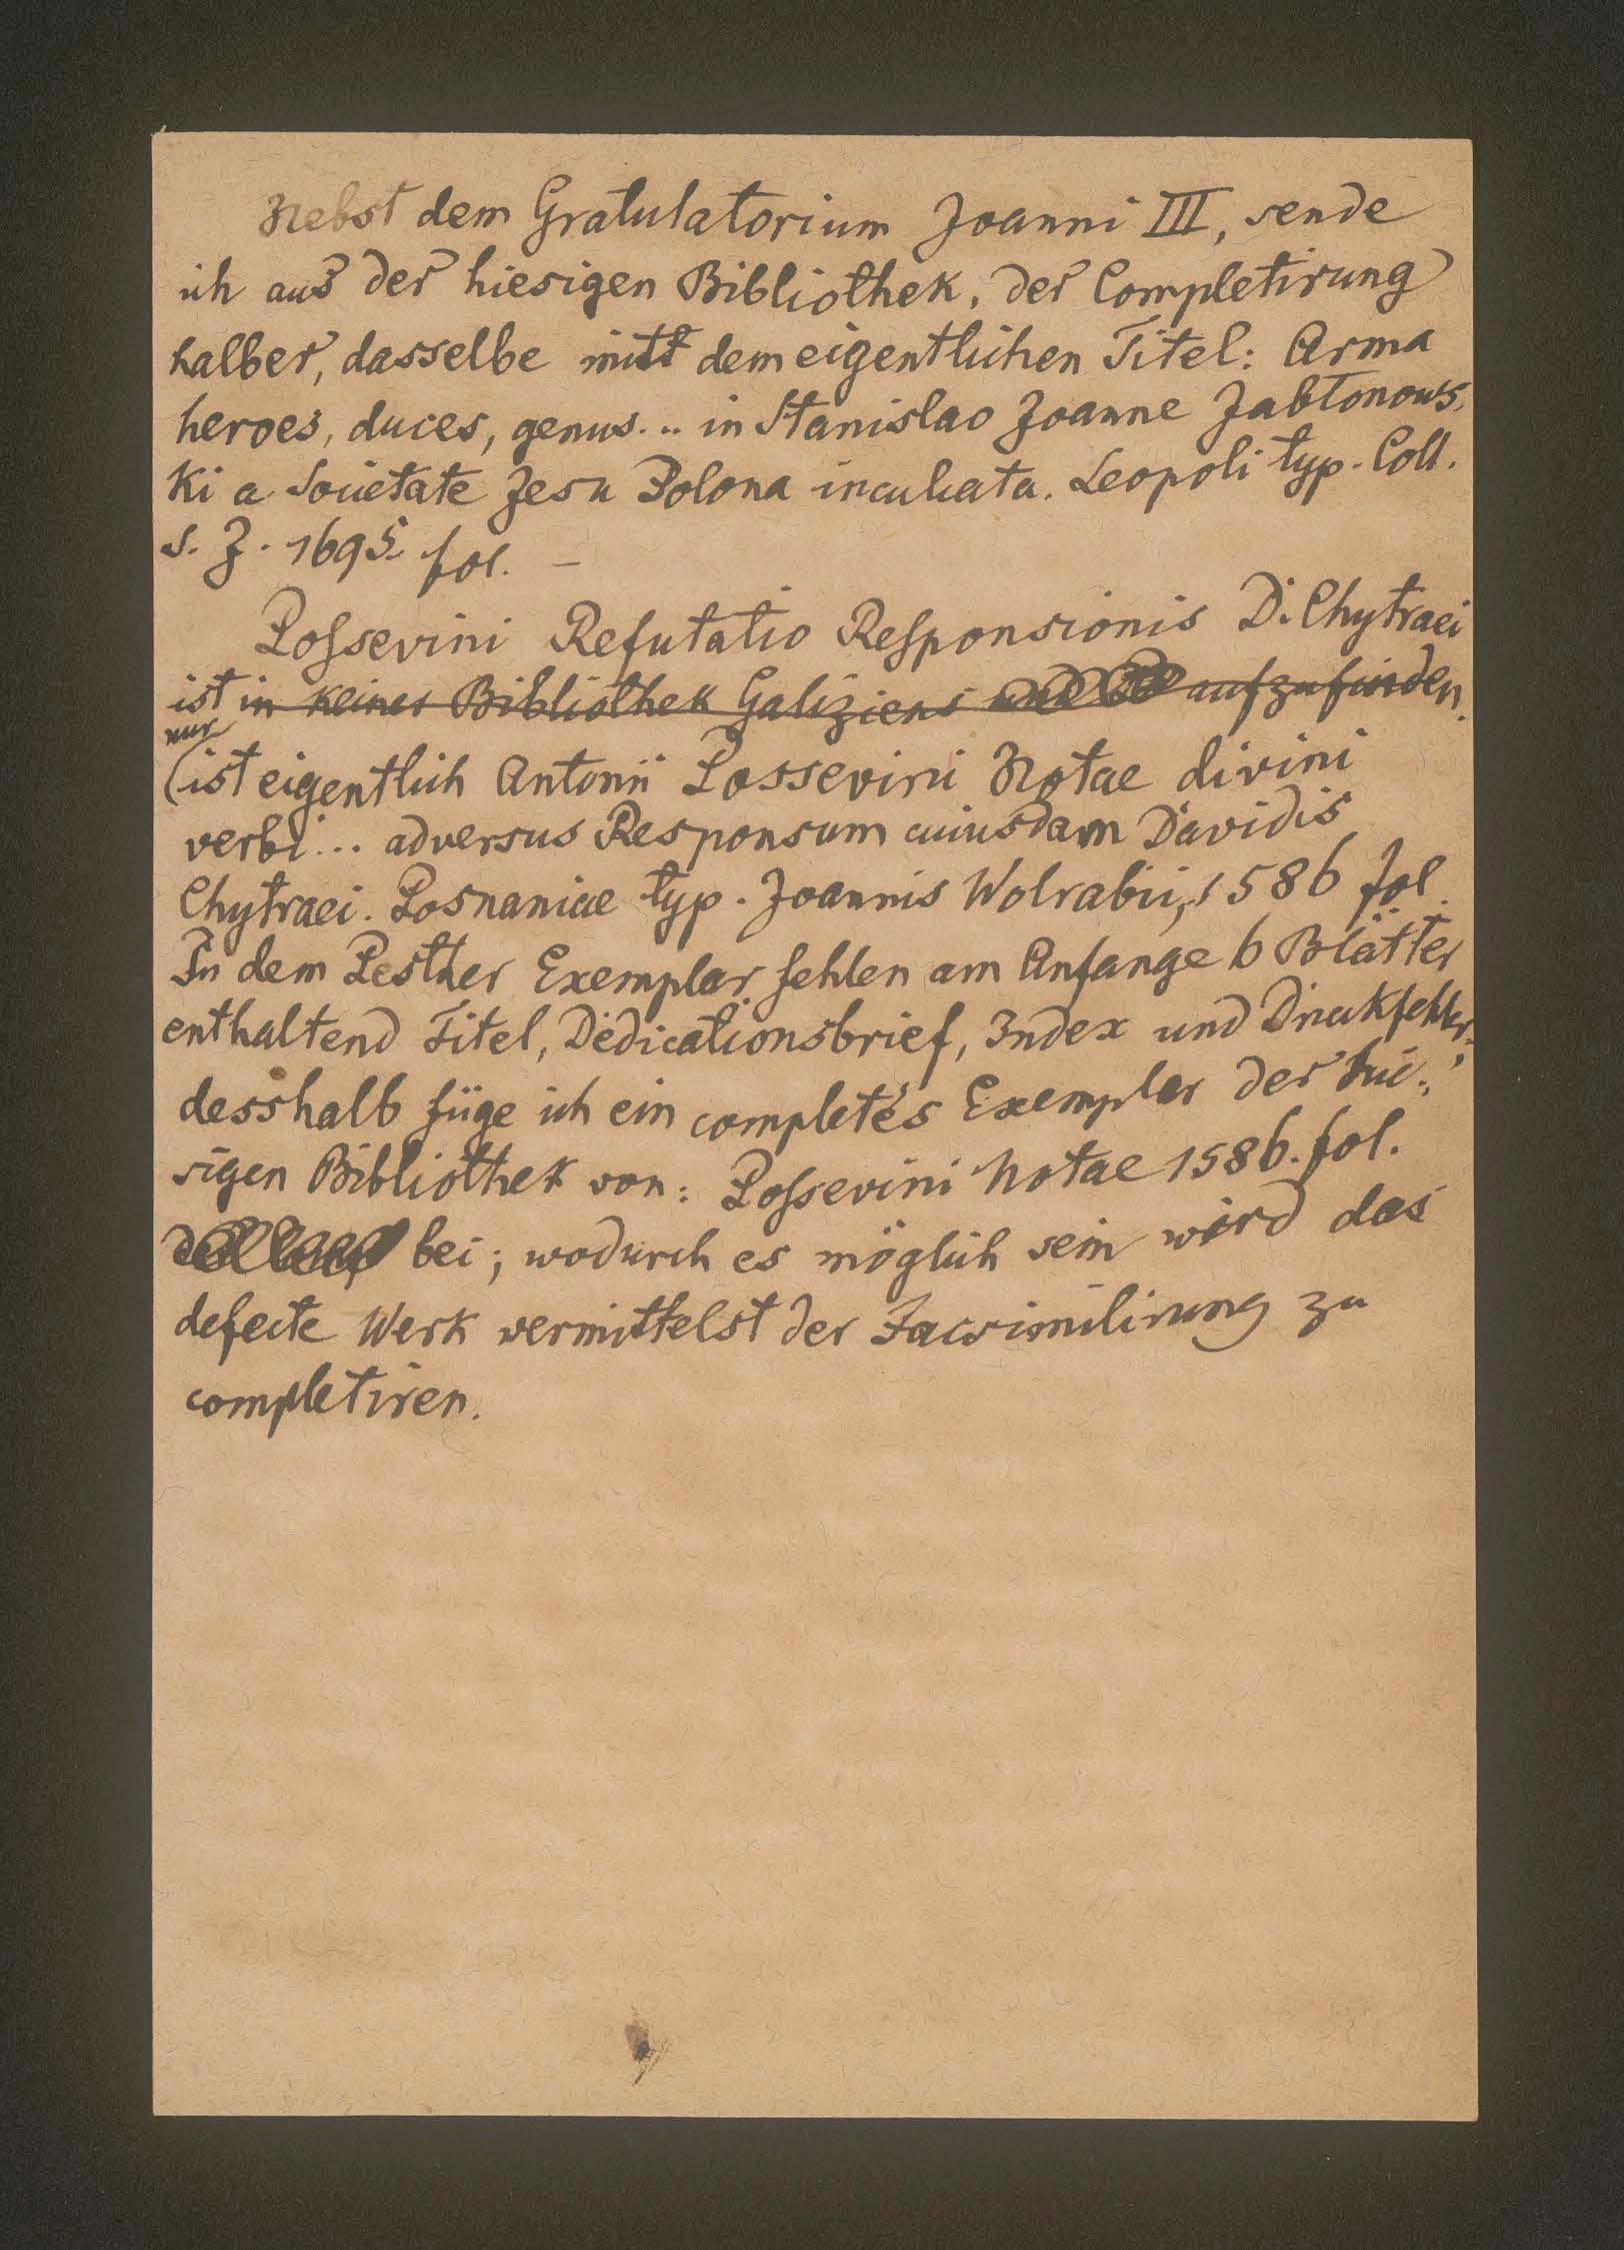 Nebst dem Gratulatorium Joanni III, sende
ich aus der hiesigen Bibliothek, der Completirung
halber, dasselbe mit dem eigentlichen Titel: Arma
heroes, duces, genus... in Stanislao Joanne Jabłonows-
ki a Societate Jesu Polona inculcata. Leopoli typ. Coll.
S. J. 1695. fol. –
Possevini Refutatio Responsionis D. Chytraei
ist in keiner Bibliothek Galiziens und aufzufinden.
nur
(ist eigentlich Antonii Possevini Notae divini
verbi... adversus Responsum cuiusdam Davidis
Chytraei. Posnaniae typ. Joannis Wolrabii, 1586 fol.
In dem Pesther Exemplar fehlen am Anfange 6 Blätter
enthaltend Titel, Dedicationsbrief, Index und Druckfehler;
desshalb füge ich ein completes Exemplar der hie-
sigen Bibliothek von: Possevini Notae 1586. fol.
bei; wodurch es möglich sein wird das
defecte Werk vermittelst der Facsimilirung zu
completiren.